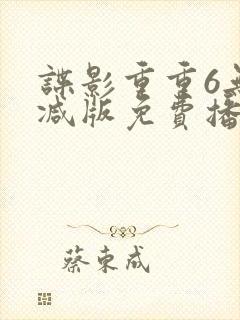 諜影重重6無
减版免費播
蔡東成